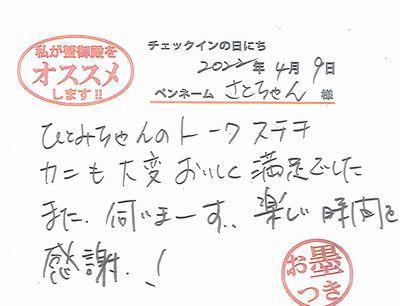 私が蟹御殿を
オススメ
します!!
チェックインの日にち
2022年4月9日
ペンネーム さとちゃん 様
ひとみちゃんのトークステキ
カニも大変おいしく満足でした
また、伺いまーす、楽しい時間を
感謝、!
お墨
つき